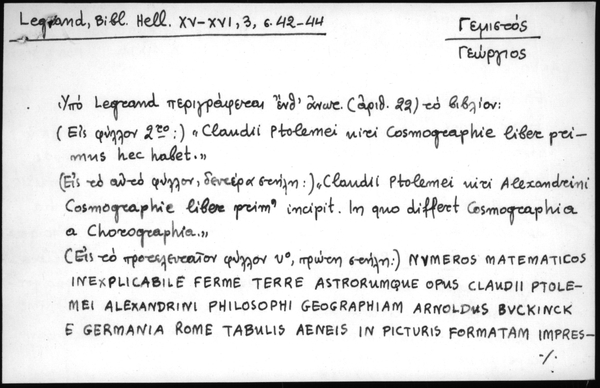 Legrand, Bibl. Hell. XV-XVI, 3, σ. 42-44
Γεμιστός
Γεώργιος
Ὑπό Legrand περιγράφεται ἔνθ' ἄνωτ. (ἀριθ. 22) τό βιβλίον:
(Εἰς φύλλον 2ro:) «Claudii Ptolemei uiri Cosmographie liber pri-
mus hec habet.»
(Εἰς τό αὐτό φύλλον, δευτέρα στήλη:) «Claudii Ptolemei uiri Alexandrini
Cosmographie liber prim⁹ incipit. In quo differt Cosmographia
a Chorographia.»
(Εἰς τό προτελευταῖον φύλλον vo, πρώτη στήλη:) NVMEROS MATEMATICOS
INEXPLICABILE FERME TERRE ASTRORUMQUE OPUS CLAUDII PTOLE-
MEI ALEXANDRINI PHILOSOPHI GEOGRAPHIAM ARNOLDUS BVCKINCK
E GERMANIA ROME TABULIS AENEIS IN PICTURIS FORMATAM IMPRES-
./.